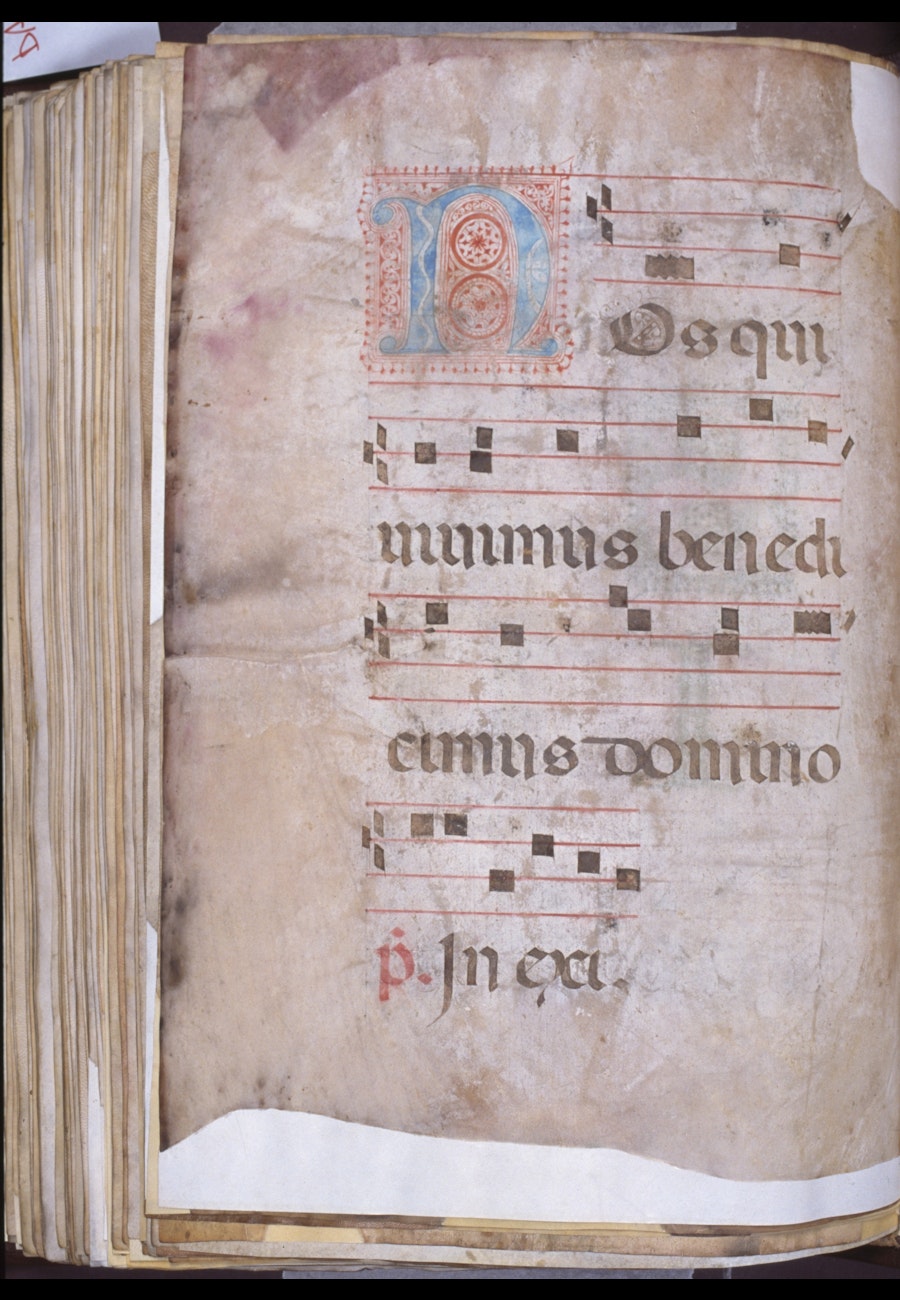 NOs qui
uiuimus benedi
cimus domino
p̃. In exi.